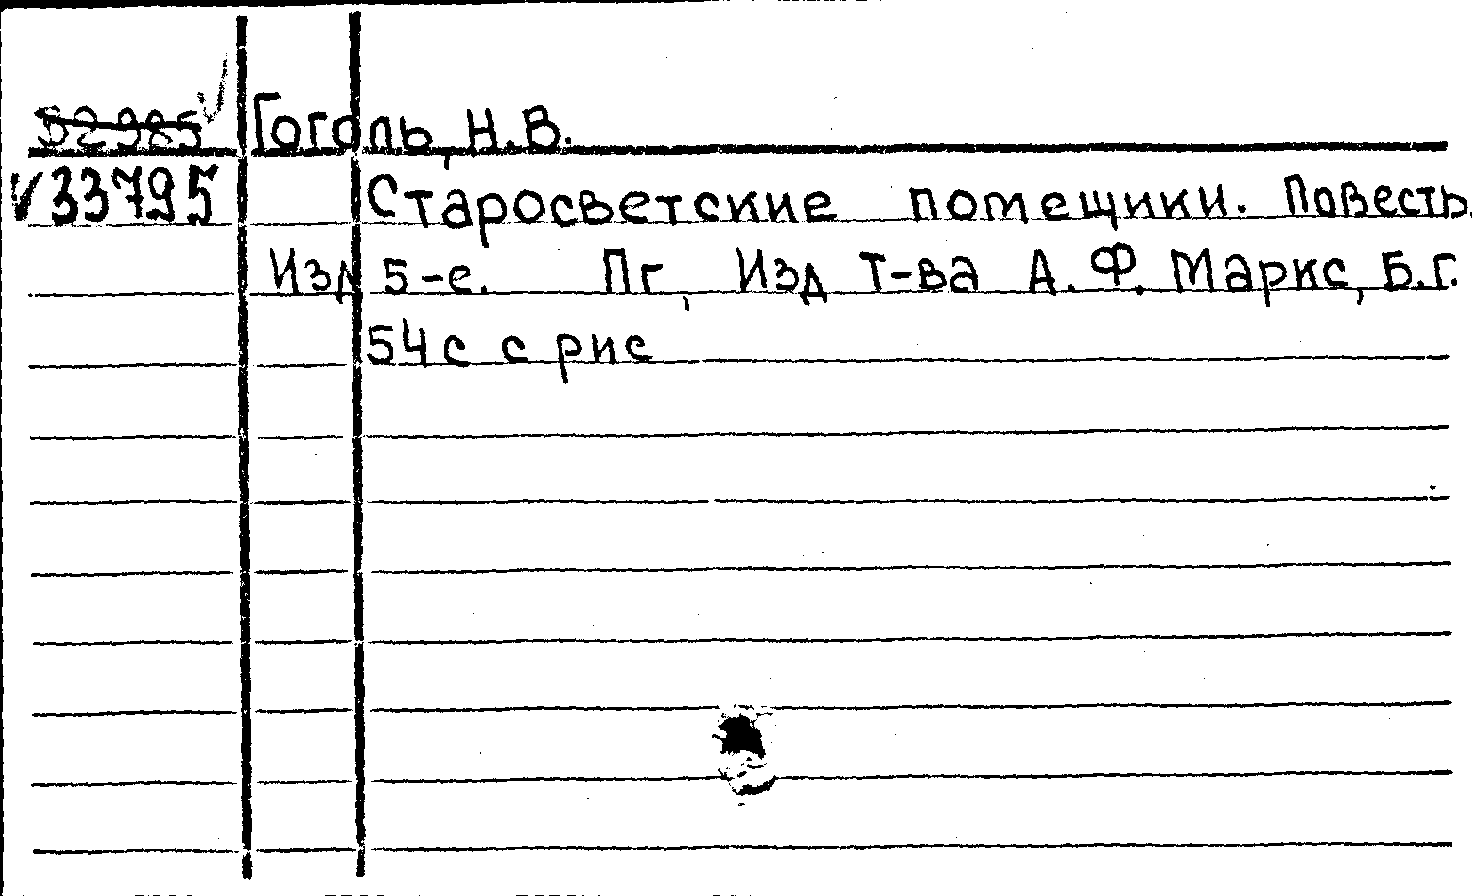 52985 Гоголь, Н.В.
33795 Старосветские помещики. Повесть.
Изд 5-е. Пг, Изд Т-ва А.Ф. Маркс, Б.г.
54с с рис